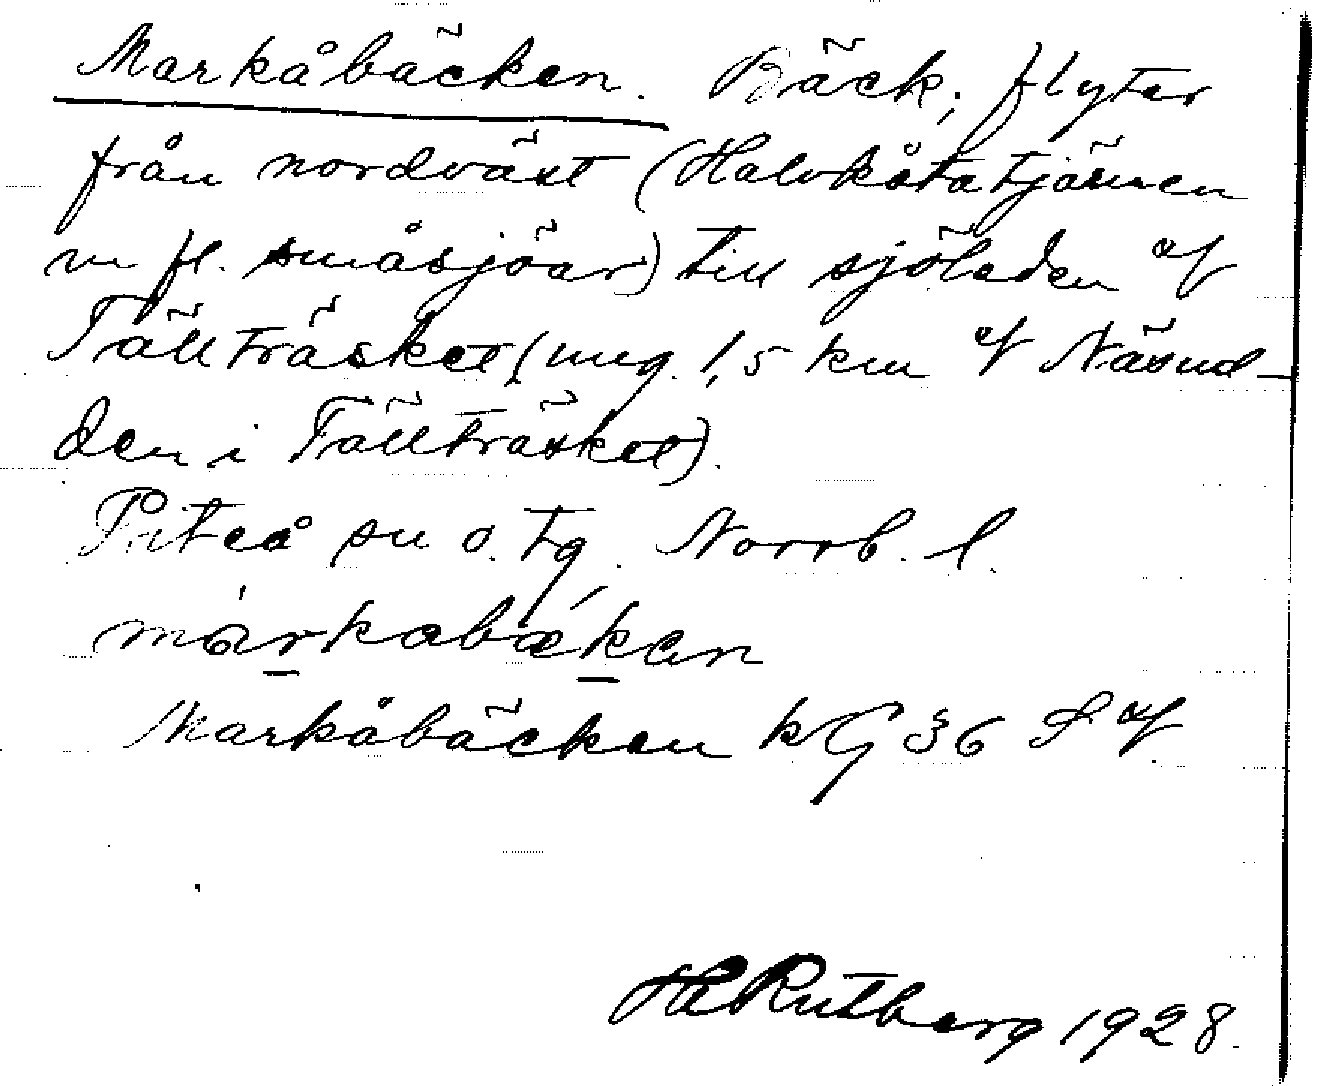 Markåbäcken. Bäck; flyter
från nordväst (Halvkåtatjärnen
m fl. småsjöar) till sjöleden af
Tällträsket (ung. 1,5 km af Näsud-
den i Tällträsket).
Piteå sn o. tg. Norrb. l.
márkabækan
Markåbäcken kG 36
HRutberg 1928.